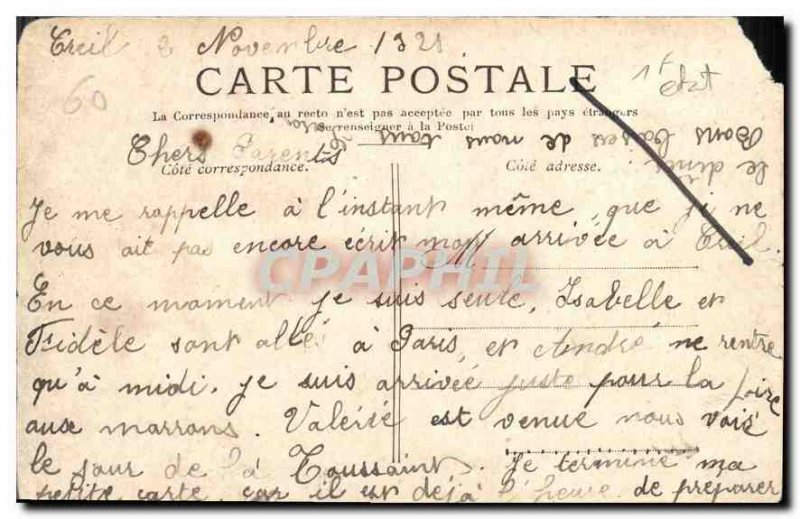 Creil 2 Novembre 1921
60
CARTE POSTALE
1r état
La Correspondance au recto n'est pas acceptée par tous les pays étrangers
Se renseigner à la Poste
Bons baisers de nous tous
le dîner
Chers Parents
Côté correspondance.
Côté adresse.
Je me rappelle à l'instant même, que je ne
vous ait pas encore écrit mon arrivée à Creil.
CPAPHIL
En ce moment je suis seule, Isabelle et
Fidèle sont allés à Paris, et André ne rentre
qu'à midi. je suis arrivée juste pour la foire
aux marrons. Valérie est venue nous voir
le jour de la Toussaint. Je termine ma
petite carte, car il est déjà l'heure de préparer